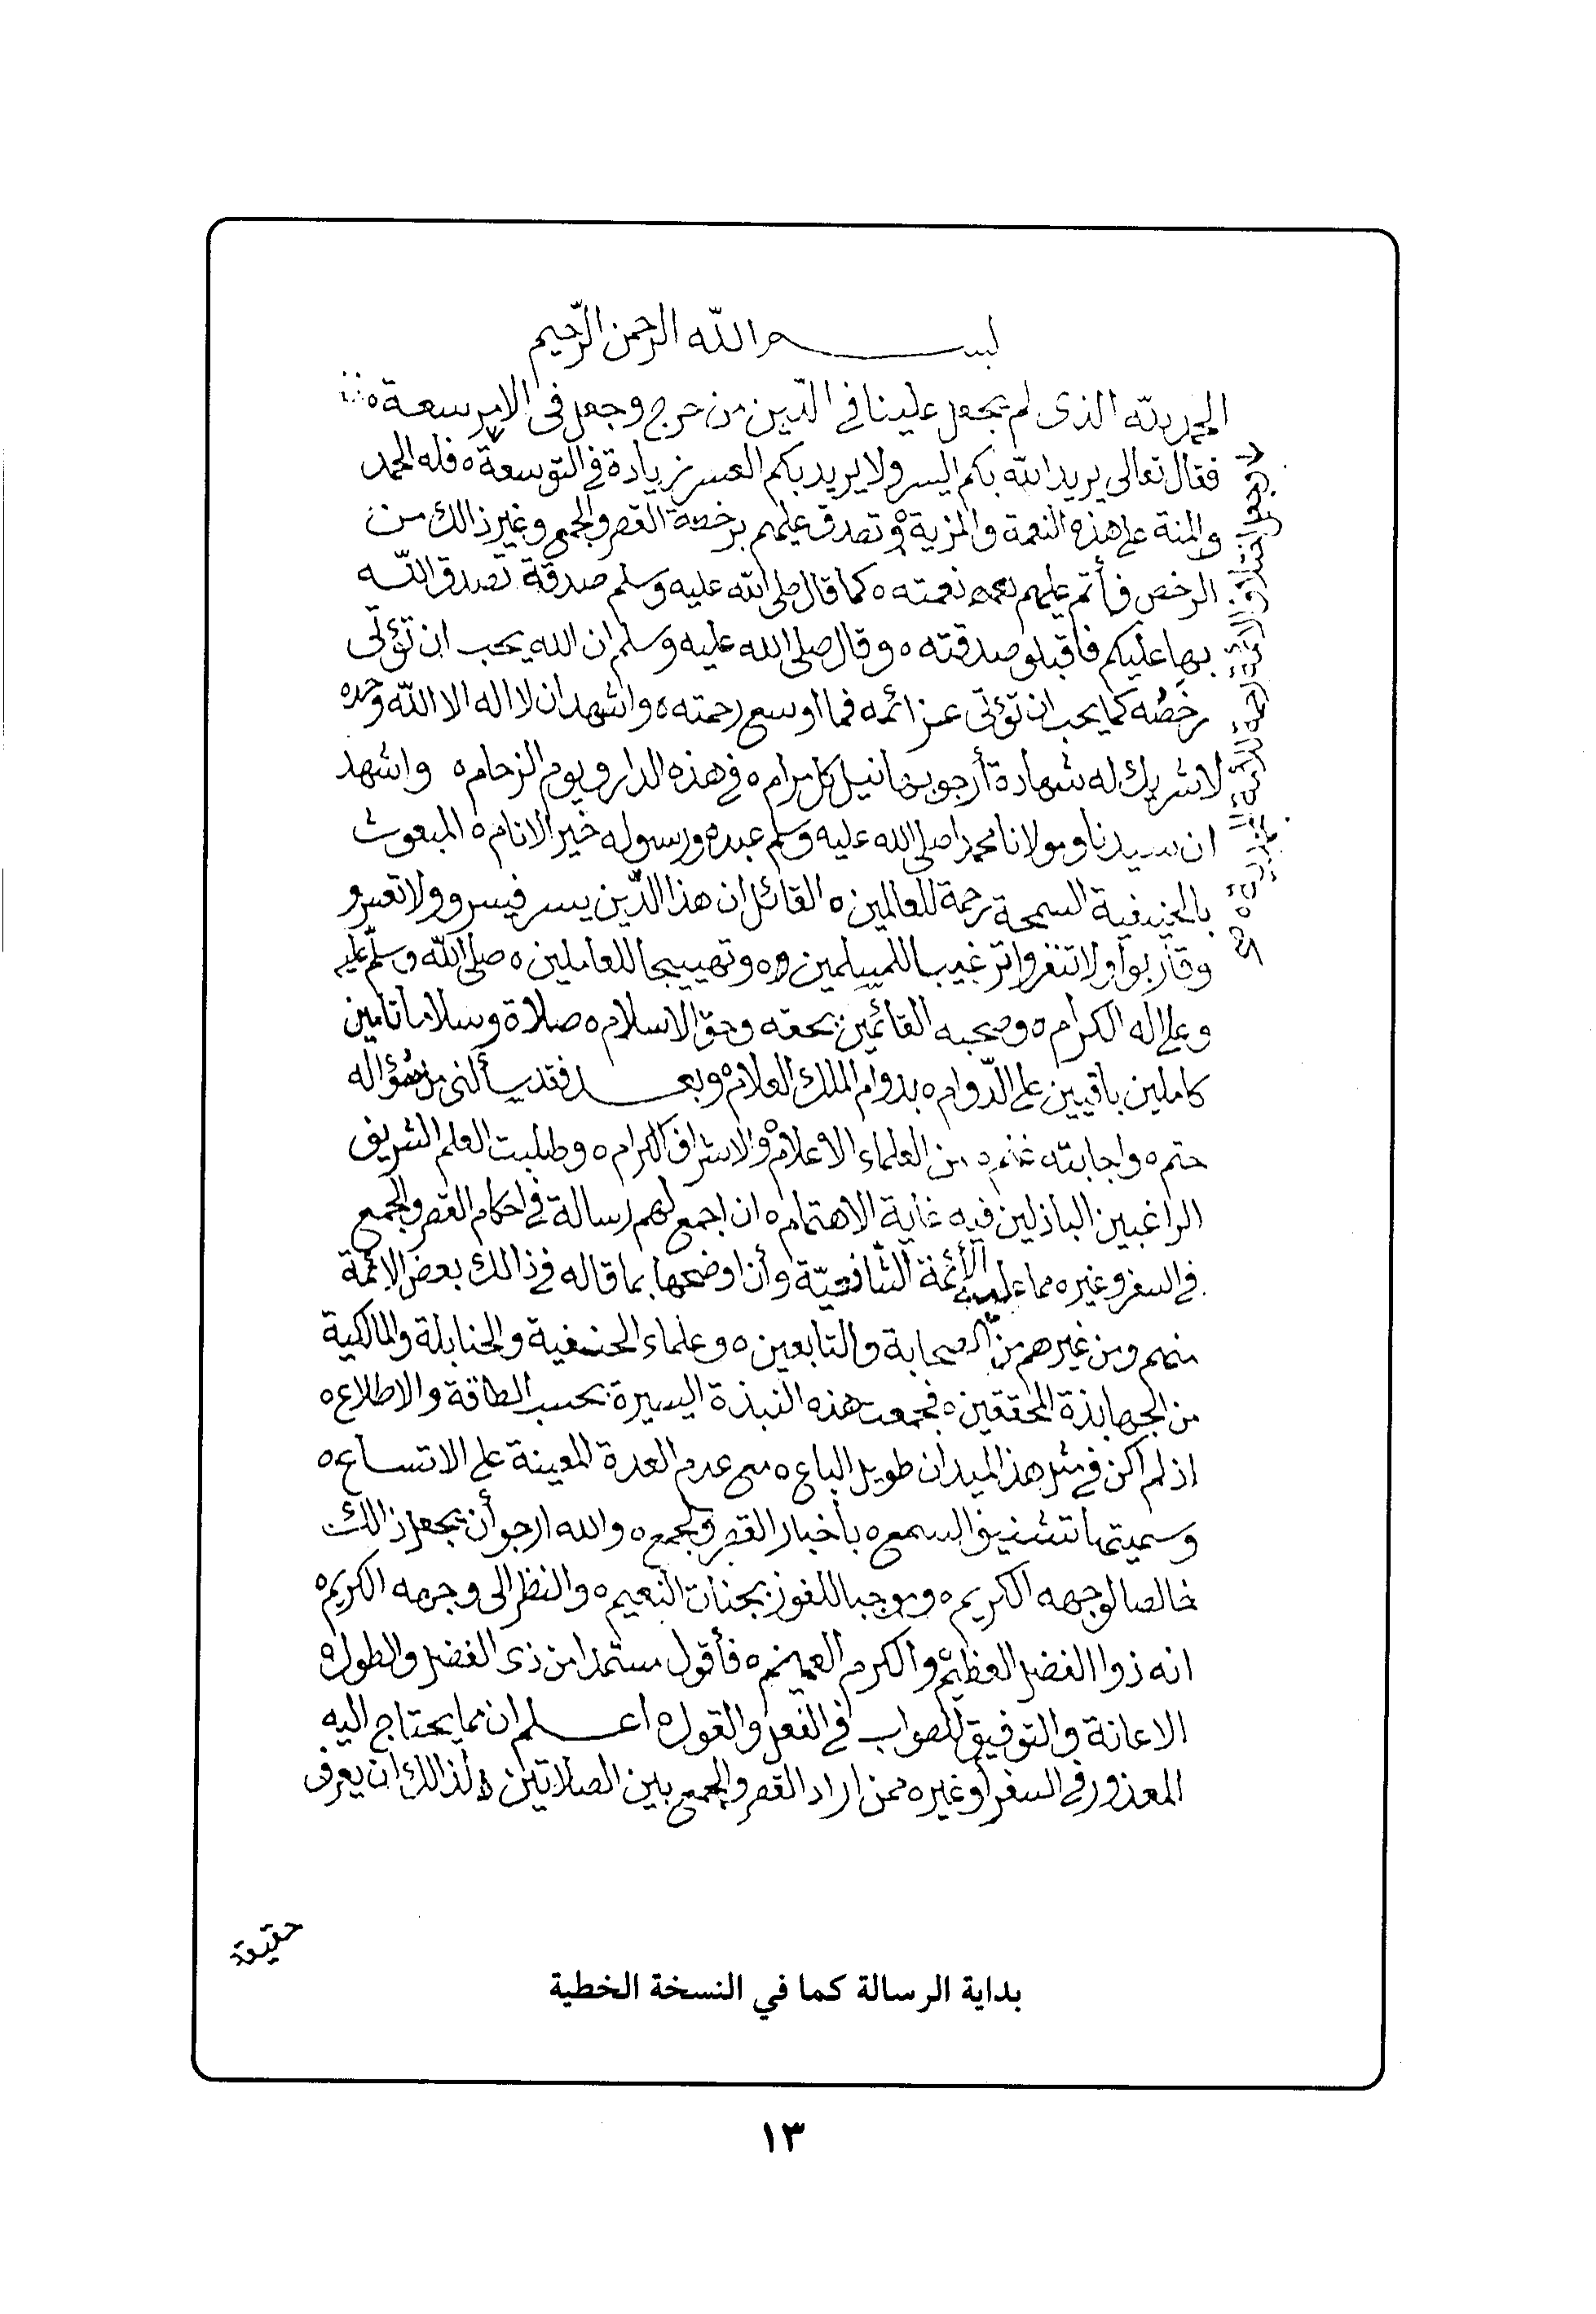 بسم الله الرحمن الرحيم
الحمد لله الذى لم يجعل علينا في الدّين من حرج وجعل فى الامر سعة ه
فقال تعالى يريد الله بكم اليسر ولا يريد بكم العسر زيادة في التوسعة ه فله الحمد
والمنة على هذه النعمة والمزية ه وتصدق عليهم برخصة القصر والجمع وغير ذالك من
الرخص فأتم عليهم نعمته ه كما قال صلى الله عليه وسلم صدقة تصدق الله
بها عليكم فاقبلو صدقته ه وقال صلى الله عليه وسلم ان الله يحب ان تؤتى
رخصُه كما يحب ان تؤتى عزائمه فما اوسع رحمته ه واشهد ان لا اله الا الله وحده
لا شريك له شهادة أرجو بها نيل كل مرام ه في هذه الدار ويوم الزحام ه واشهد
ان سيدنا ومولانا محمدا صلى الله عليه وسلم عبده ورسوله خير الانام ه المبعوث
بالحنيفية السمحة رحمة للعالمين ه القائل ان هذا الدّين يسر فيسرو ولا تعسرو
وقاربوا ولا تنفروا ترغيبا للمسلمين ه وتهييجا للعاملين ه صلى الله وسلّم عليه
وعلى اله الكرام ه وصحبه القائمين بحقه وحق الاسلام ه صلاة وسلاما تامين
كاملين باقيين على الدّوام ه بدوام الملك العلام ه وبعد فقد سألنى من سُؤاله
حتم ه واجابته غنم ه من العلماء الاعلام ه والاشراف الكرام ه وطلبت العلم الشريف
الراغبين الباذلين فيه غاية الاهتمام ه ان اجمع لهم رسالة في احكام القصر والجمع
في السفر وغيره مما عليه الأئمة الشافعيّة وأن اوضحها بما قاله في ذالك بعض الائمة
منهم ومن غيرهم من الصحابة والتابعين ه وعلماء الحنفية والحنابلة والمالكية
من الجهابذة المحققين ه فجمعت هذه النبذة اليسيرة بحسب الطاقة والاطلاع ه
اذ لم اكن في مثل هذ الميدان طويل الباع ه مع عدم العدة المعينة على الاتساع ه
وسميتها تشنيف السمع ه بأخبار القصر والجمع ه والله ارجو أن يجعل ذالك
خالصا لوجهه الكريم ه وموجبا للفوز بجنات النعيم ه والنظر الى وجهه الكريم ه
انه ذوا الفضل العظيم والكرم العميم ه فأقول مستمدا من ذى الفضل والطول ه
الاعانة والتوفيق للصواب في الفعل والقول ه اعلم ان مما يحتاج اليه
المعذور في السفر أو غيره ممن اراد القصر والجمع بين الصلاتين لذالك ان يعرف
وجعل اختلاف الائمة رحمة للأمة
حقيقة
بداية الرسالة كما في النسخة الخطية
١٣